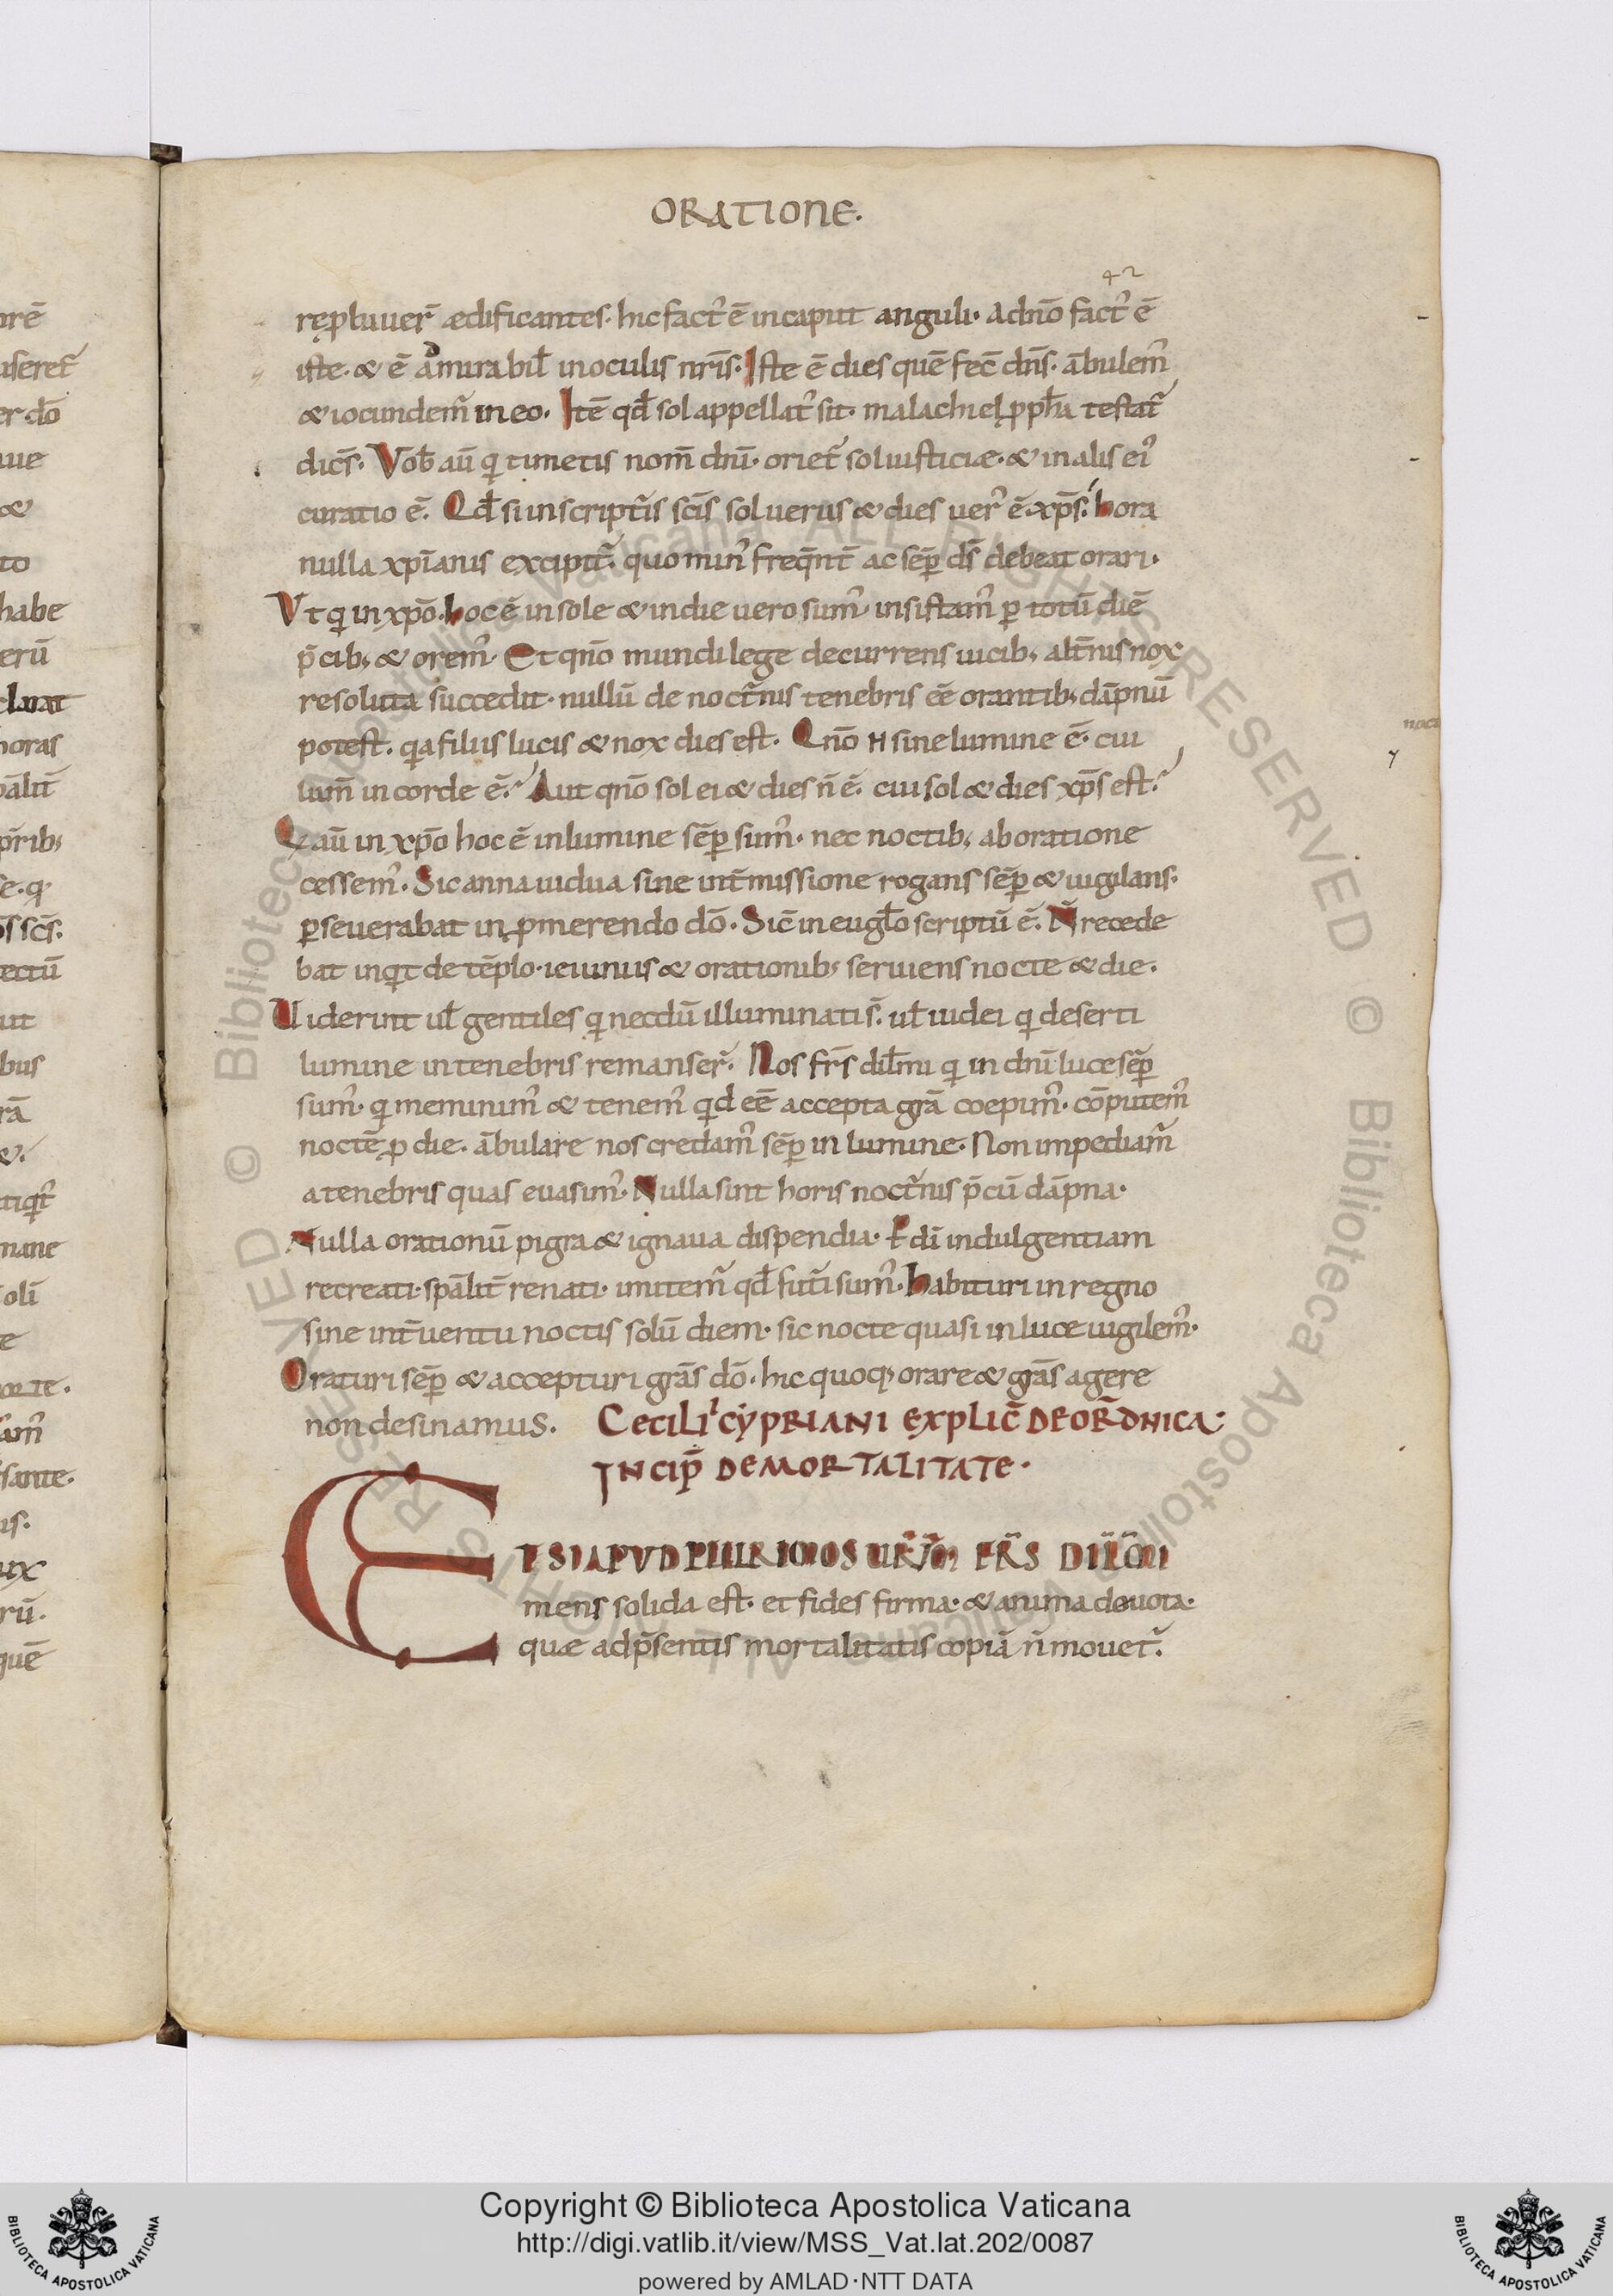 ORATIONE.
42
ręꝓbauuer̃ ædificantes. hic fact᾽ ē in caput anguli. A dn̄o fact᾽ ē
iste. & ē admirabil̄ in oculis nr̄is. Iste ē dies quē fec̄ dn̄s. ābulem᾽
& iocundem᾽ in eo. Itē qd̄ sol appellat᾽ sit. malachiel ꝓpħa testat̃
dicēs. Vob̄ aū qi timetis nom̄ dnī. oriet̃ sol iusticiæ. & in alis ei᾽
curatio ē. Qd̄ si in scriptur̄is scīs sol uerus & dies uer᾽ ē xp̄s. hora
nulla xp̄ianis excipit̃. quo min᾽ freq̄nt̄ ac sēꝑ ds̄ debeat orari.
Vt qi in xp̄o. hoc ē in sole & in die uero sum᾽ insistam᾽ ꝑ totū diē
p̄cib; & orem᾽. Et qn̄o mundi lege decurrens uicib; alt̄nis nox
resoluta succedit. nullū de noct̃nis tenebris eē orantib; dāpnū
potest. qia filiis lucis & nox dies est. Qn̄o n̄ sine lumine ē. cui
lum̄ in corde ē. Aut qn̄o sol ei & dies n̄ ē. cui sol & dies xp̄s est.
Qi aū in xp̄o hoc ē in lumine sēꝑ sum᾽. nec noctib; ab oratione
cessem᾽. Sic anna uidua sine int̄missione rogans sēꝑ & uigilans.
ꝑseuerabat in ꝓmerendo dō. Sic̄ in eugl̄o scriptū ē. N̄ recede
bat inqit de tēplo. ieiuniis & orationib; seruiens nocte & die.
Uiderint ul̄ gentiles qi necdū illuminati s̄. ul̄ iudei qi deserti
lumine in tenebris remanser̃. Nos fr̄s dil̄mi qi in dnī luce sēꝑ
sum᾽. qi meminim᾽ & tenem᾽ qid eē accepta grā coepim᾽. cōputem᾽
noctē ꝓ die. ābulare nos credam᾽ sēꝑ in lumine. Non impediam᾽
a tenebris quas euasim᾽. Nulla sint horis noct̃nis p̄cū dāpna.
Nulla orationū pigra & ignaua dispendia. P dī indulgentiam
recreati. spālit̄ renati. imitem᾽ qd̄ fut̃i sum᾽. habituri in regno
sine int̄uentu noctis solū diem. sic nocte quasi in luce uigilem᾽.
Oraturi sēꝑ & accepturi grās dō. hic quoq; orare & grās agere
non desinamus. CECILI᾽ CYPRIANI EXPLIC̄ DE OR̄ DNICA.
INCIP̄ DE MORTALITATE.
ET SI APVD PLURIMOS UR̄M FR̄S DIL̄MI
mens solida est. et fides firma. & anima deuota.
quæ ad p̄sentis mortalitatis copiā n̄ mouet̃.
Copyright © Biblioteca Apostolica Vaticana
http://digi.vatlib.it/view/MSS_Vat.lat.202/0087
powered by AMLAD·NTT DATA